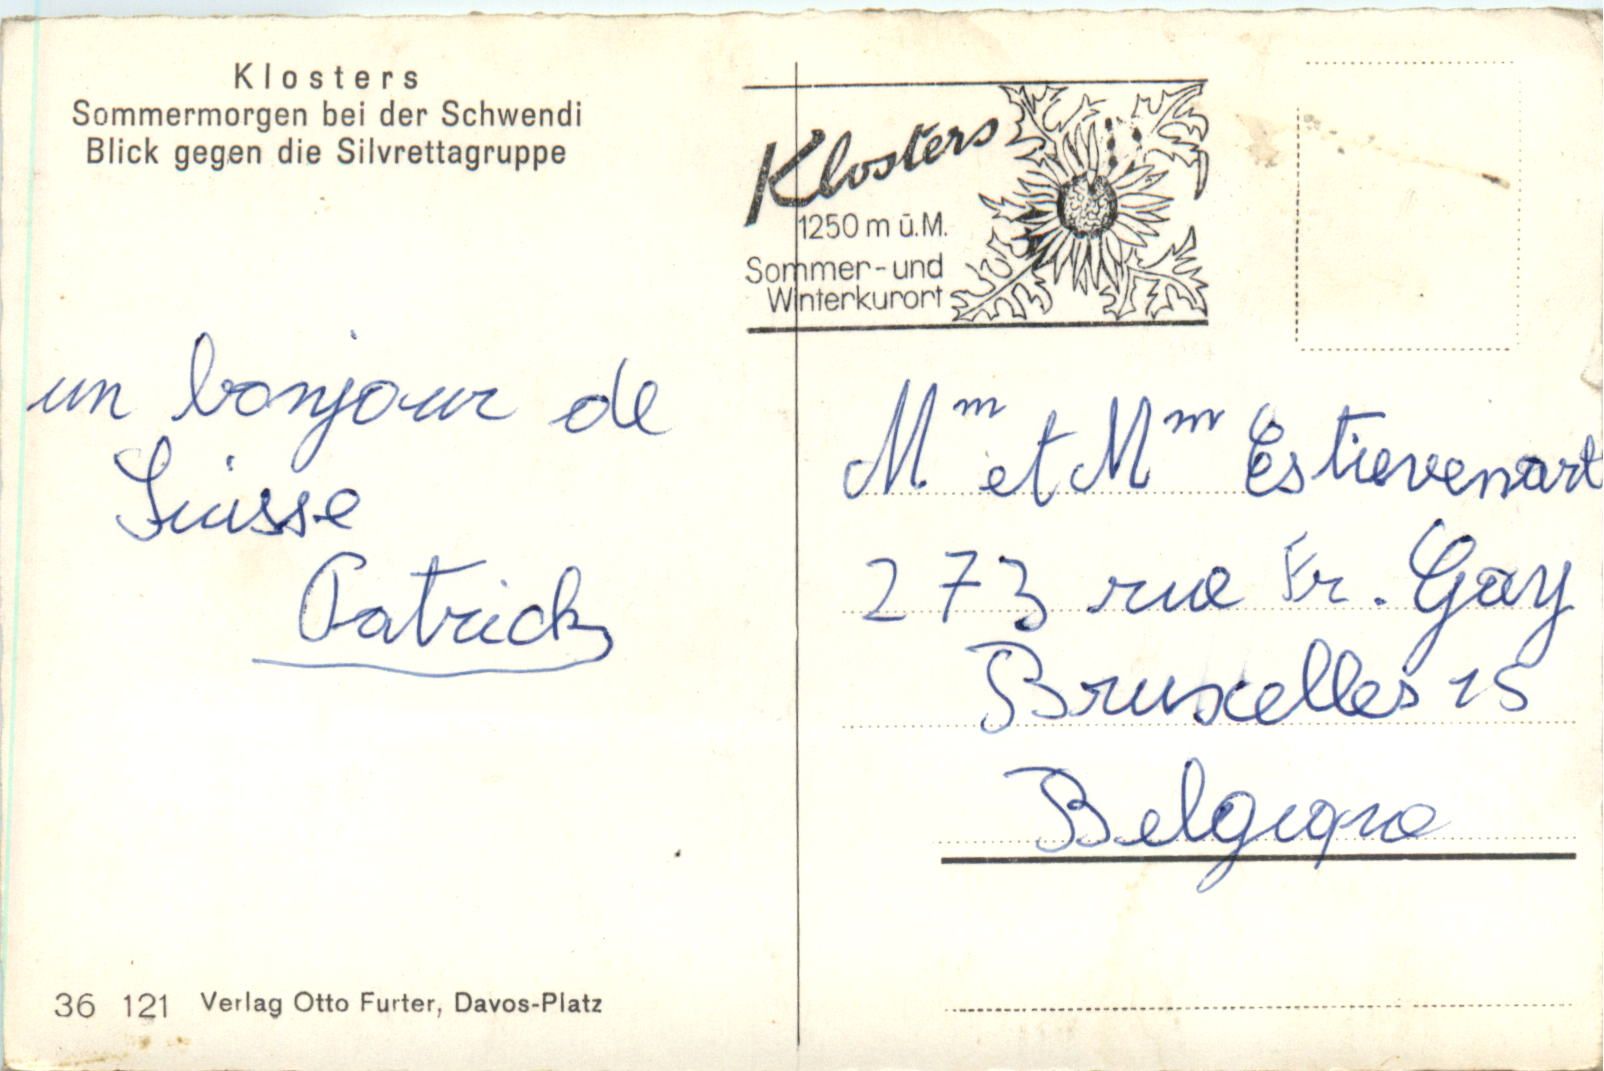 Klosters
Sommermorgen bei der Schwendi
Blick gegen die Silvrettagruppe
Klosters
1250 m ü.M.
Sommer-und
Winterkurort
un bonjour de
Suisse
Patrick
M.m et Mm Estievenart
273 rue Fr. Gay
Bruxelles 15
Belgique
36 121 Verlag Otto Furter, Davos-Platz